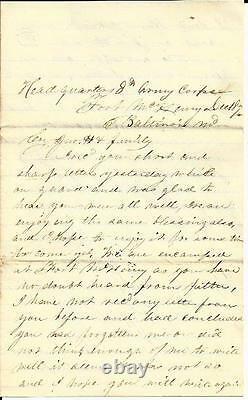 Head quarters 8th Army Corps
Fort McHenry
Baltimore Md
& family
Recd your short and
sharp letter yesterday while
on guard and was glad to
hear you were all well. I am
enjoying the same blessing also,
and hope to enjoy it for some time
to come yet. We are encamped
at Fort McHenry as you have
no doubt heard from father,
I have not recd any letter from
you before and had concluded
you had forgotten me or did
not think enough of me to write
well it seems not so
and I hope you will write again